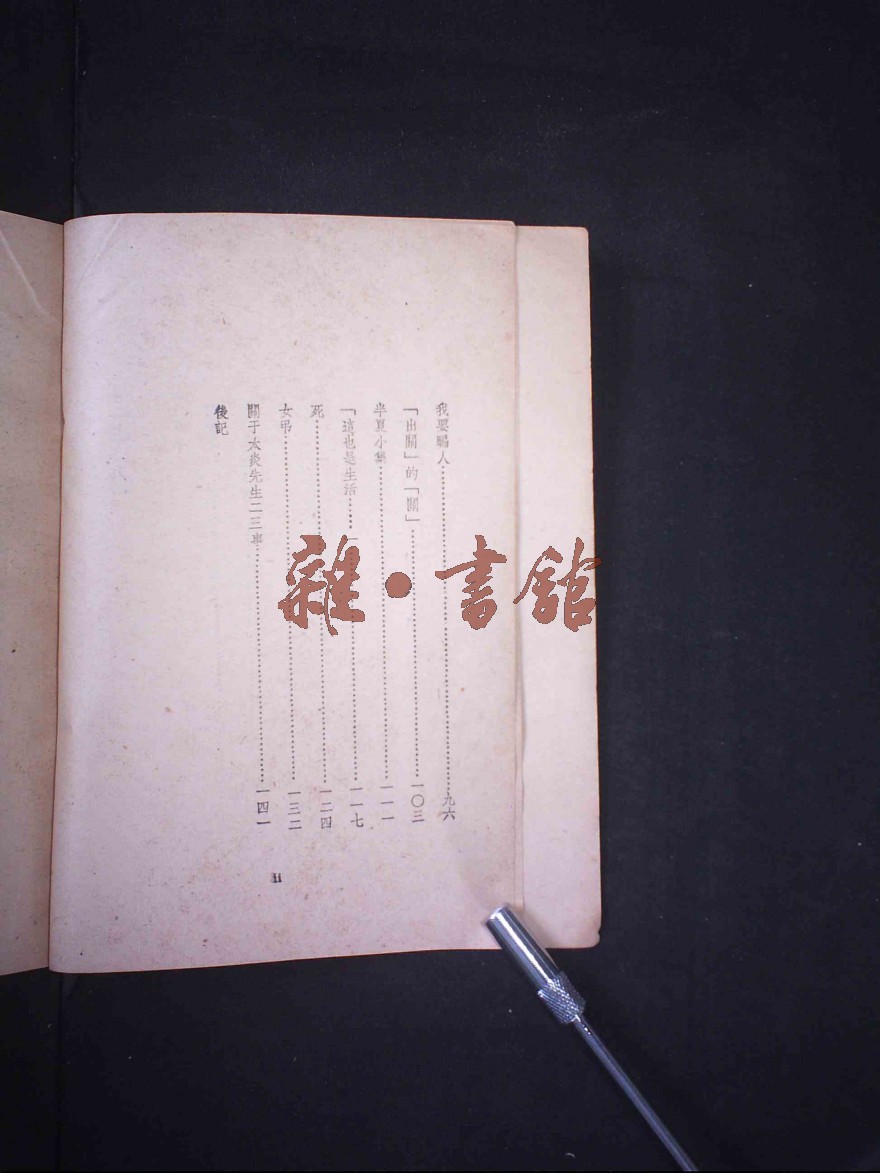 我要騙人……九六
「出關」的「關」……一〇三
半夏小集……一一一
「這也是生活……一一七
死……一二四
女弔……一三二
關于太炎先生二三事……一四一
後記
II
雜·書館